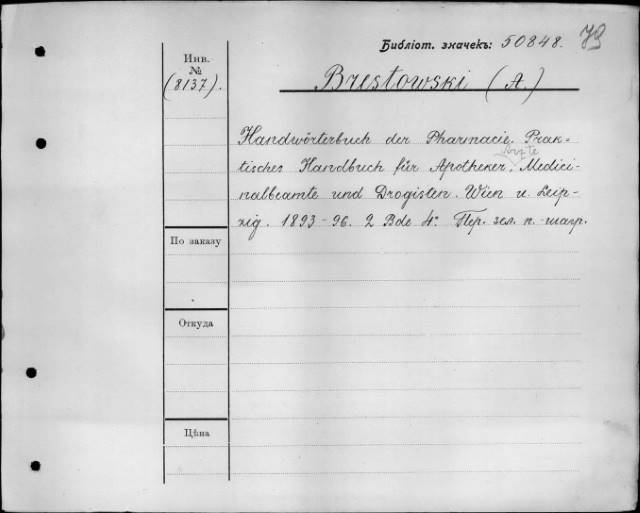 Библіот. значекъ: 50848.
Инв.
№
(8137).
Brestowski (A.)
Handwörterbuch der Pharmacie. Prak-
Ärzte
tisches Handbuch für Apotheker, Medici-
nalbeamte und Drogisten. Wien u. Leip-
zig. 1893-96. 2 Bde 4º Пер. зел. п. шагр.
По заказу
Откуда
Цѣна